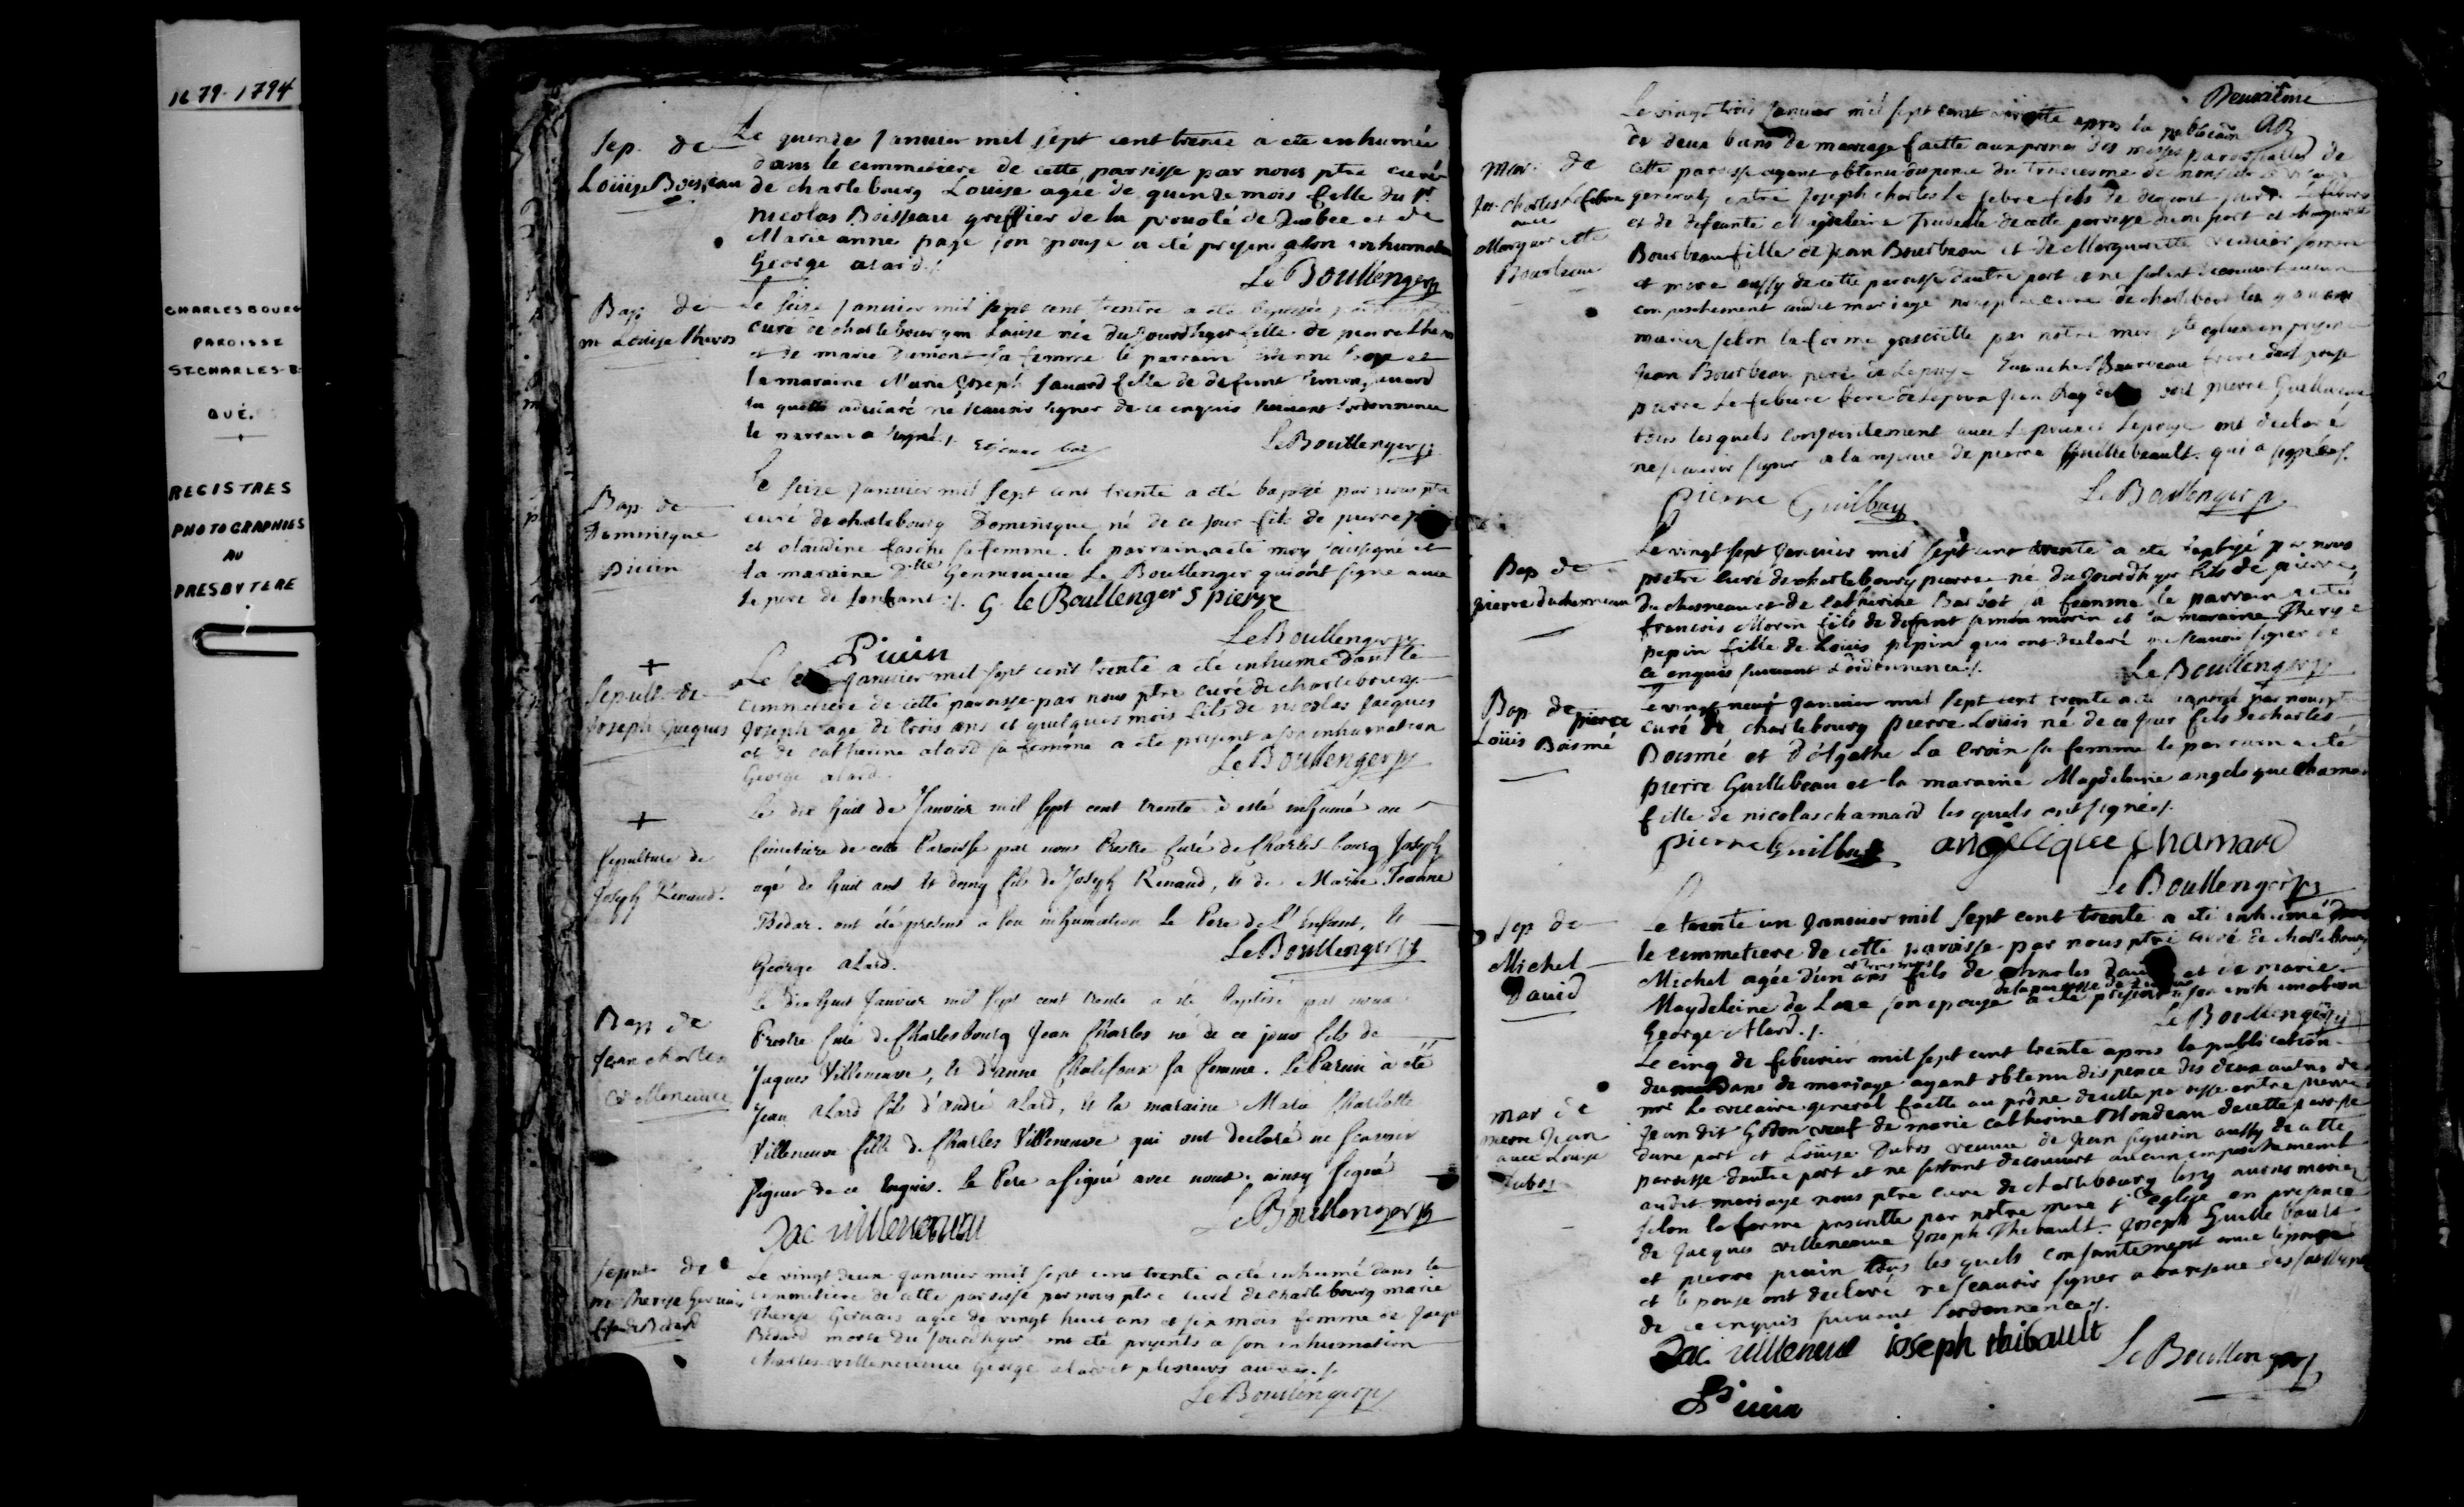 1679-1794
CHARLESBOURG
PAROISSE
ST-CHARLES-B.
QUÉ.
REGISTRES
PHOTOGRAPHIÉS
AU
PRESBYTERE
Sep. de
Loüise Boisseau
Le quinze Janvier mil sept cent trente a ete enhumée
dans le cemmetiere de cette paroisse par nous ptre curé
de charlebourg Louise agée de quinze mois fille du Sr.
Nicolas Boisseau greffier de la prevoté de Quebec et de
Marie anne pagé son epouse a eté present a son inhumation
George alard ./.
LeBoullenger p
Bap de
m Loüise Theros
Le seize Janvier mil sept cent trente a eté
curé de charlebourg m Louise née du Jourdhuy fille de pierre
et de marie Dumont sa femme le parrain etienne
la maraine Marie Joseph Savard fille de defunt Simon Savard
la quelle a declaré ne scavoir signer de ce enquis suivant l'ordonnance
le parrain a signé ./.
LeBoullenger p
Bap de
Dominique
Piuin
Le seize Janvier mil sept cent trente a eté baptisé par nous ptre
curé de charlebourg Dominique né de ce jour fils de pierre
et claudine fasche sa femme. le parrain a eté moy soussigné et
la maraine Dlle Gennevieve Le Boullenger qui ont signé avec
le pere de lenfant ./. G. le Boullenger S pierre
Piuin
LeBoullenger p
+
Sepult. de
Joseph Jacques
Le Janvier mil sept cent trente a eté inhumé dans le
cemmetiere de cette paroisse par nous ptre curé de charlebourg
Joseph agé de trois ans et quelques mois fils de nicolas Jacques
et de catherine alard sa femme a ete present a son inhumation
George alard.
LeBoullenger p
+
Sepulture de
Joseph Renaud.
Le dix huit de Janvier mil sept cent trente a esté inhumé au
Cimetiere de cette Paroisse par nous Prestre Curé de Charles bourg Joseph
agé de huit ans et demy fils de Joseph Renaud, et de Marie Jeanne
Bedar. ont été presens a son inhumation Le Pere de l'Enfant, et
George alard.
LeBoullenger p
Bap de
Jean charles
Villeneuve
Le dix huit Janvier mil sept cent trente a eté Baptisé par nous
Prestre Curé de Charlesbourg Jean Charles né de ce jour fils de
Jaques Villeneuve, et d'anne Chalifour sa femme. Le Parain à été
Jean alard fils d'andré alard, et la maraine Marie Charlotte
Villeneuve fille de Charles Villeneuve qui ont declaré ne scavoir
signer de ce Enquis. Le Pere a signé avec nous. ainsy signé
Jac uilleneuue
LeBoullenger p
Sepult. de
m therese Gervais
fe de Bedard
Le vingt deux Janvier mil sept cent trente a eté inhumé dans le
cemmetiere de cette paroisse par nous ptre curé de charlebourg marie
Therese Gervais agée de vingt huit ans et six mois femme de Jacque
Bedard morte du Jourdhuy ont eté presents a son inhumation
charles villeneuve George alard et plusieurs autres ./.
LeBoullenger p
Deuxieme
mar. de
Jos. charles Lefebvre
avec
Marguerite
Bourbeau
Le vingt trois Janvier mil sept cent apres la publication
de deux bans de mariage faitte aux prones des messes paroissialles de
cette paroisse ayant obtenu dispence du troisiesme de
general entre Joseph charles Le febvre fils de defunt pierre Lefebvre
et de defunte Magdeleine Trudelle de cette paroisse dune part et marguerite
Bourbeau fille de Jean Bourbeau et de Marguerite
et mere aussy de cette paroisse dautre part et ne sestant decouvert aucun
empeschement audit mariage nous ptre curé de charlebourg les avons
mariez selon la forme prescritte par notre mere ste eglise en presence
Jean Bourbeau pere de Lepouse Eustache Bourbeau frere de lepouse
pierre Lefebvre frere de lepoux Jean pierre Guillebeau
tous lesquels conjointement avec Lepoux et Lepouse ont declaré
ne scavoir signer a la reserve de pierre Guillebeault. qui a signé ./.
pierre Guilbau
LeBoullenger p
Bap de
pierre duchesneau
Le vingt sept Janvier mil sept cent trente a eté baptisé par nous
prestre curé de charlebourg pierre né du Jourdhuy fils de pierre
du chesneau et de catherine Barbot sa femme le parrain a eté
francois Morin fils de defunt simon morin et la maraine Therese
pepin fille de Louis pepin qui ont declaré ne scavoir signer de
ce enquis suivant Lordonnance ./.
LeBoullenger p
Bap de pierre
Loüis Boismé
Le vingt neuf Janvier mil sept cent trente a eté baptisé par nous ptre
curé de charlebourg pierre Louis né de ce Jour fils de charles
Boismé et d'Agathe La croix sa femme le parrain a eté
pierre Guillebeau et la maraine Magdeleine angelique chamard
fille de nicolas chamard les quels ont signé ./.
pierre Guilbau angelique chamard
LeBoullenger p
Sep de
Michel
David
Le trente un Janvier mil sept cent trente a eté inhumé dans
le cemmetiere de cette paroisse par nous ptre curé de charlebourg
Michel agée d'un ans fils de charles David et de marie
Magdeleine de Lage son epouse a eté present a son inhumation
George Alard ./.
LeBoullenger p
mar de
pierre Jean
avec Louise
Dubos
Le cinq de febvrier mil sept cent trente apres la publication
du bans de mariage ayant obtenu dispence des deux autres de
mr Le vicaire general faitte au prône de cette paroisse entre pierre
Jean dit Godon veuf de marie catherine Blondeau de cette paroisse
dune part et Loüise Dubos veuve de Jean Siguin aussy de cette
paroisse dautre part et ne sestant decouvert aucun empeschement
audit mariage nous ptre curé de charlebourg les y avons mariez
selon la forme prescritte par notre mere ste eglise en presence
de Jacques villeneuve Joseph Thibault. Joseph Guillebault
et pierre piuin tous les quels conjointement avec lepoux
et lepouse ont declaré ne scavoir signer a la reserve des soussignez
de ce enquis suivant Lordonnance ./.
Jac uilleneuue ioseph thibault
LeBoullenger p
Piuin